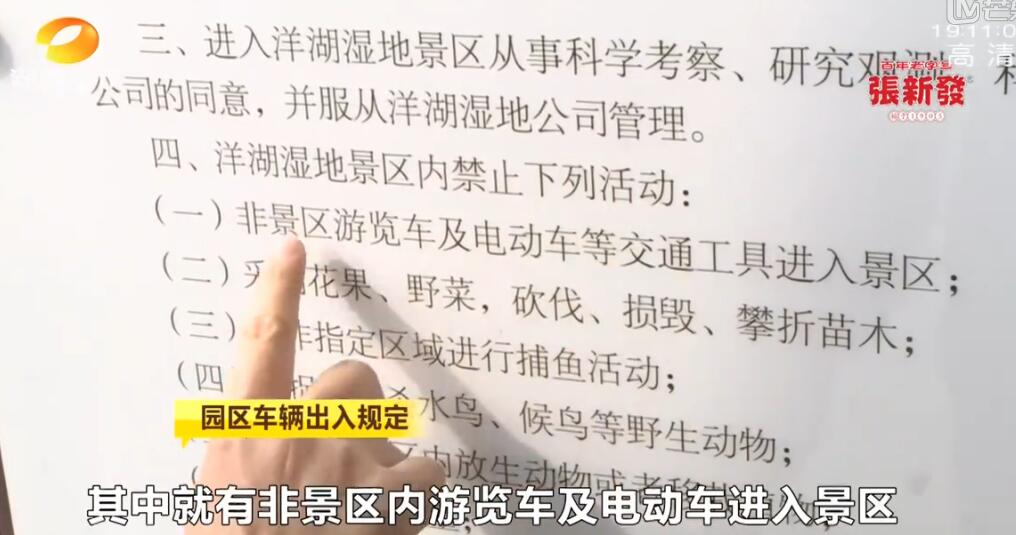 19:11:0
高清
百年老字号
張新發
三、进入洋湖湿地景区从事科学考察、研究观测
公司的同意，并服从洋湖湿地公司管理。
四、洋湖湿地景区内禁止下列活动：
（一）非景区游览车及电动车等交通工具进入景区；
（二）采 花果、野菜，砍伐、损毁、攀折苗木；
（三） 非指定区域进行捕鱼活动；
（四 杀水鸟、候鸟等野生动物；
区内放生动物或者移
园区车辆出入规定
其中就有非景区内游览车及电动车进入景区